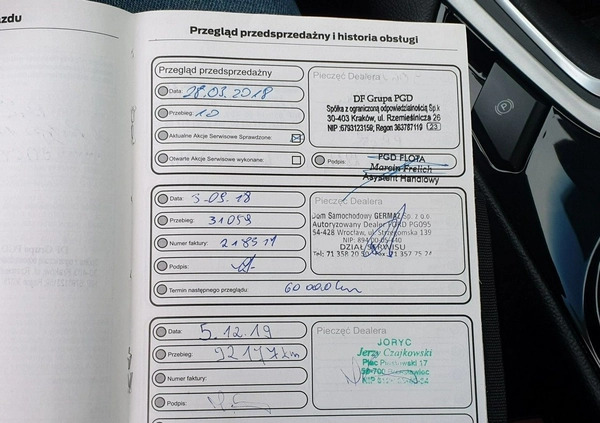 zdu
Przegląd przedsprzedażny i historia obsługi
Przegląd przedsprzedażny
Data: 28.03.2018
Przebieg: 10
Aktualne Akcje Serwisowe Sprawdzone:
Otwarte Akcje Serwisowe wykonane:
Pieczęć Dealera
DF Grupa PGD
Spółka z ograniczoną odpowiedzialnością Sp.k
30-403 Kraków, ul. Rzemieślnicza 26
NIP:6793123159; Regon 363787119 23
Podpis
PGD FLOTA
Marcin Frelich
Asystent Handlowy
Data: 3-09.18
Przebieg: 31059
Numer faktury: 218511
Podpis:
Termin następnego przeglądu: 60 000 km
Pieczęć Dealera
Dom Samochodowy GERMAZ Sp. z o.o.
Autoryzowany Dealer FORD PG095
54-428 Wrocław, ul. Strzegomska 139
NIP: 894
DZIAŁ SERWISU
Tel: 71 358 20
Data: 5.12.19
Przebieg: 92177 km
Numer faktury:
Podpis:
Pieczęć Dealera
JORYC
Jerzy Czajkowski
Plac Piastowski 17
NIP